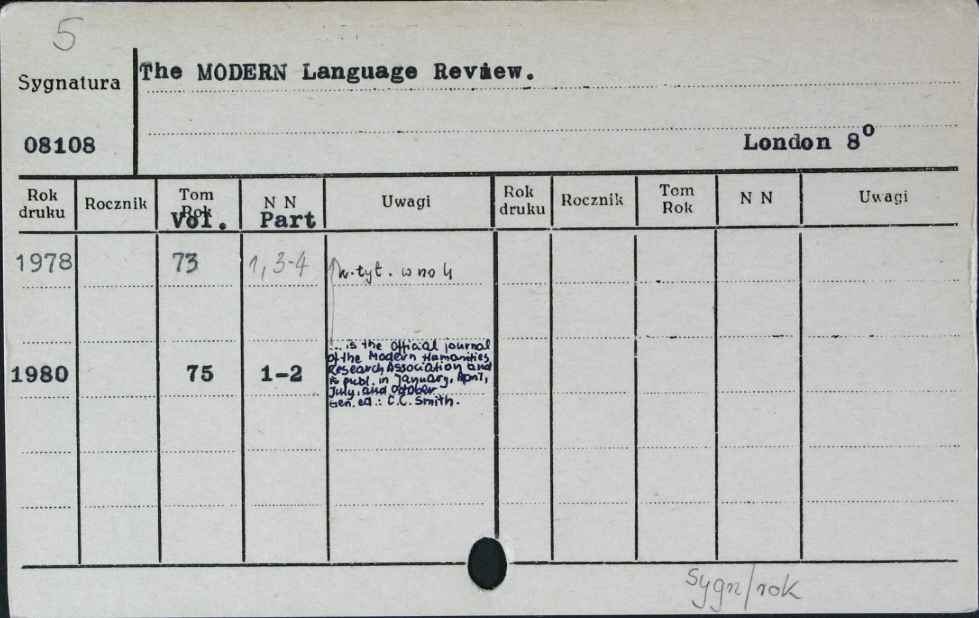 5
Sygnatura
The MODERN Language Review.
08108
London 8º
Rok druku Rocznik Tom Rok N N Uwagi Rok druku Rocznik Tom Rok N N Uwagi
Vol. Part
1978 73 1, 3-4 w no 4
1980 75 1-2
... is the official journal
of the Modern Humanities
Research Association and
is publ. in January, April,
July, and October
Gen. ed.: C.C. Smith.
Sygn/rok